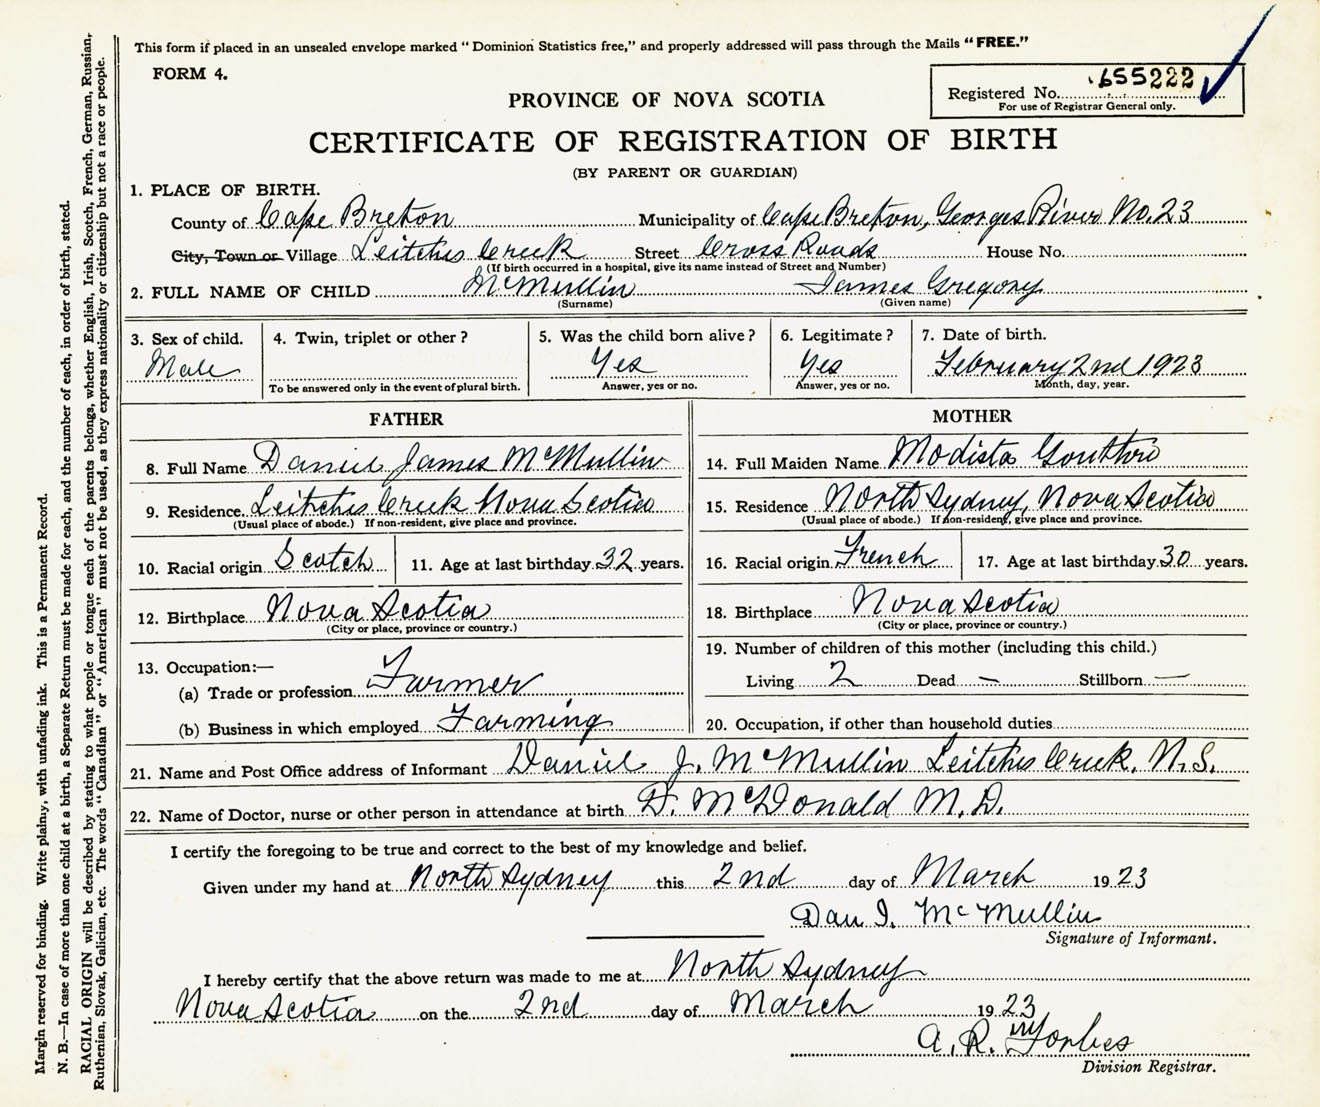 This form if placed in an unsealed envelope marked "Dominion Statistics free," and properly addressed will pass through the Mails "FREE."
FORM 4.
Registered No. 655222
For use of Registrar General only.
PROVINCE OF NOVA SCOTIA
CERTIFICATE OF REGISTRATION OF BIRTH
(BY PARENT OR GUARDIAN)
1. PLACE OF BIRTH.
County of Cape Breton Municipality of Cape Breton, Georges River No. 23
City, Town or Village Leitches Creek Street Cross Roads House No.
(If birth occurred in a hospital, give its name instead of Street and Number)
2. FULL NAME OF CHILD McMullin James Gregory
(Surname) (Given name)
3. Sex of child. 4. Twin, triplet or other? 5. Was the child born alive? 6. Legitimate? 7. Date of birth.
Male Yes Yes February 2nd 1923
To be answered only in the event of plural birth. Answer, yes or no. Answer, yes or no. Month, day, year.
FATHER
8. Full Name Daniel James McMullin
9. Residence. Leitches Creek Nova Scotia
(Usual place of abode.) If non-resident, give place and province.
10. Racial origin Scotch 11. Age at last birthday 32 years.
12. Birthplace Nova Scotia
(City or place, province or country.)
13. Occupation:—
(a) Trade or profession Farmer
(b) Business in which employed Farming
MOTHER
14. Full Maiden Name Modista Gouthro
15. Residence North Sydney, Nova Scotia
(Usual place of abode.) If non-resident, give place and province.
16. Racial origin French 17. Age at last birthday 30 years.
18. Birthplace Nova Scotia
(City or place, province or country.)
19. Number of children of this mother (including this child.)
Living 2 Dead — Stillborn —
20. Occupation, if other than household duties
21. Name and Post Office address of Informant Daniel J. McMullin Leitches Creek, N.S.
22. Name of Doctor, nurse or other person in attendance at birth D. McDonald M.D.
I certify the foregoing to be true and correct to the best of my knowledge and belief.
Given under my hand at North Sydney this 2nd day of March 1923
Dan J. McMullin
Signature of Informant.
I hereby certify that the above return was made to me at North Sydney
Nova Scotia on the 2nd day of March 1923
A. R. Forbes
Division Registrar.
Margin reserved for binding. Write plainly, with unfading ink. This is a Permanent Record.
N. B.—In case of more than one child at a birth, a Separate Return must be made for each, and the number of each, in order of birth, stated.
RACIAL ORIGIN will be described by stating to what people or tongue each of the parents belongs, whether English, Irish, Scotch, French, German, Russian,
Ruthenian, Slovak, Galician, etc. The words "Canadian" or "American" must not be used, as they express nationality or citizenship but not a race or people.